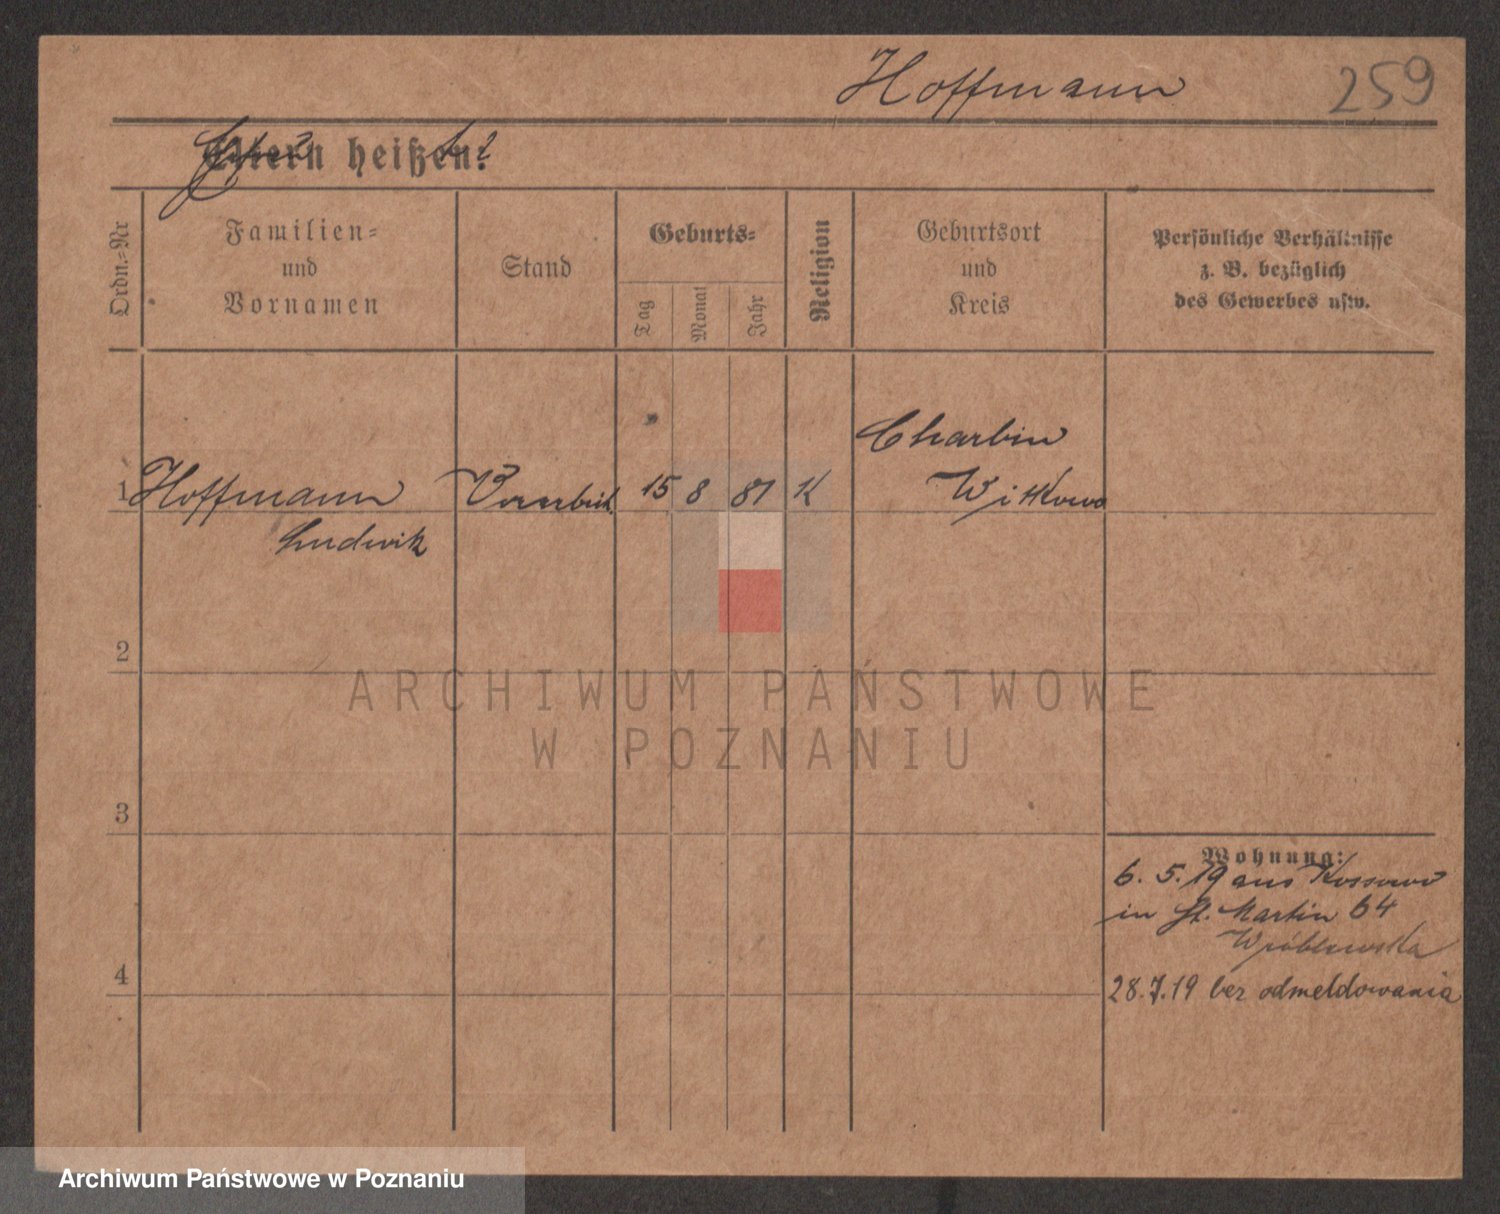 Hoffmann 259
Eltern heißen:
Ordn.-Nr
Familien-
und
Vornamen
Stand
Geburts-
Tag
Monat
Jahr
Religion
Geburtsort
und
Kreis
Persönliche Verhältnisse
z. B. bezüglich
des Gewerbes usw.
Charbin
1 Hoffmann 15 8 81 K Witkowo
Ludwik
2
3
4
Wohnung:
6. 5. 19 aus Kossowo
in St. Martin 64
Wróblewska
28.7.19 bez odmeldowania
ARCHIWUM PAŃSTWOWE
W POZNANIU
Archiwum Państwowe w Poznaniu